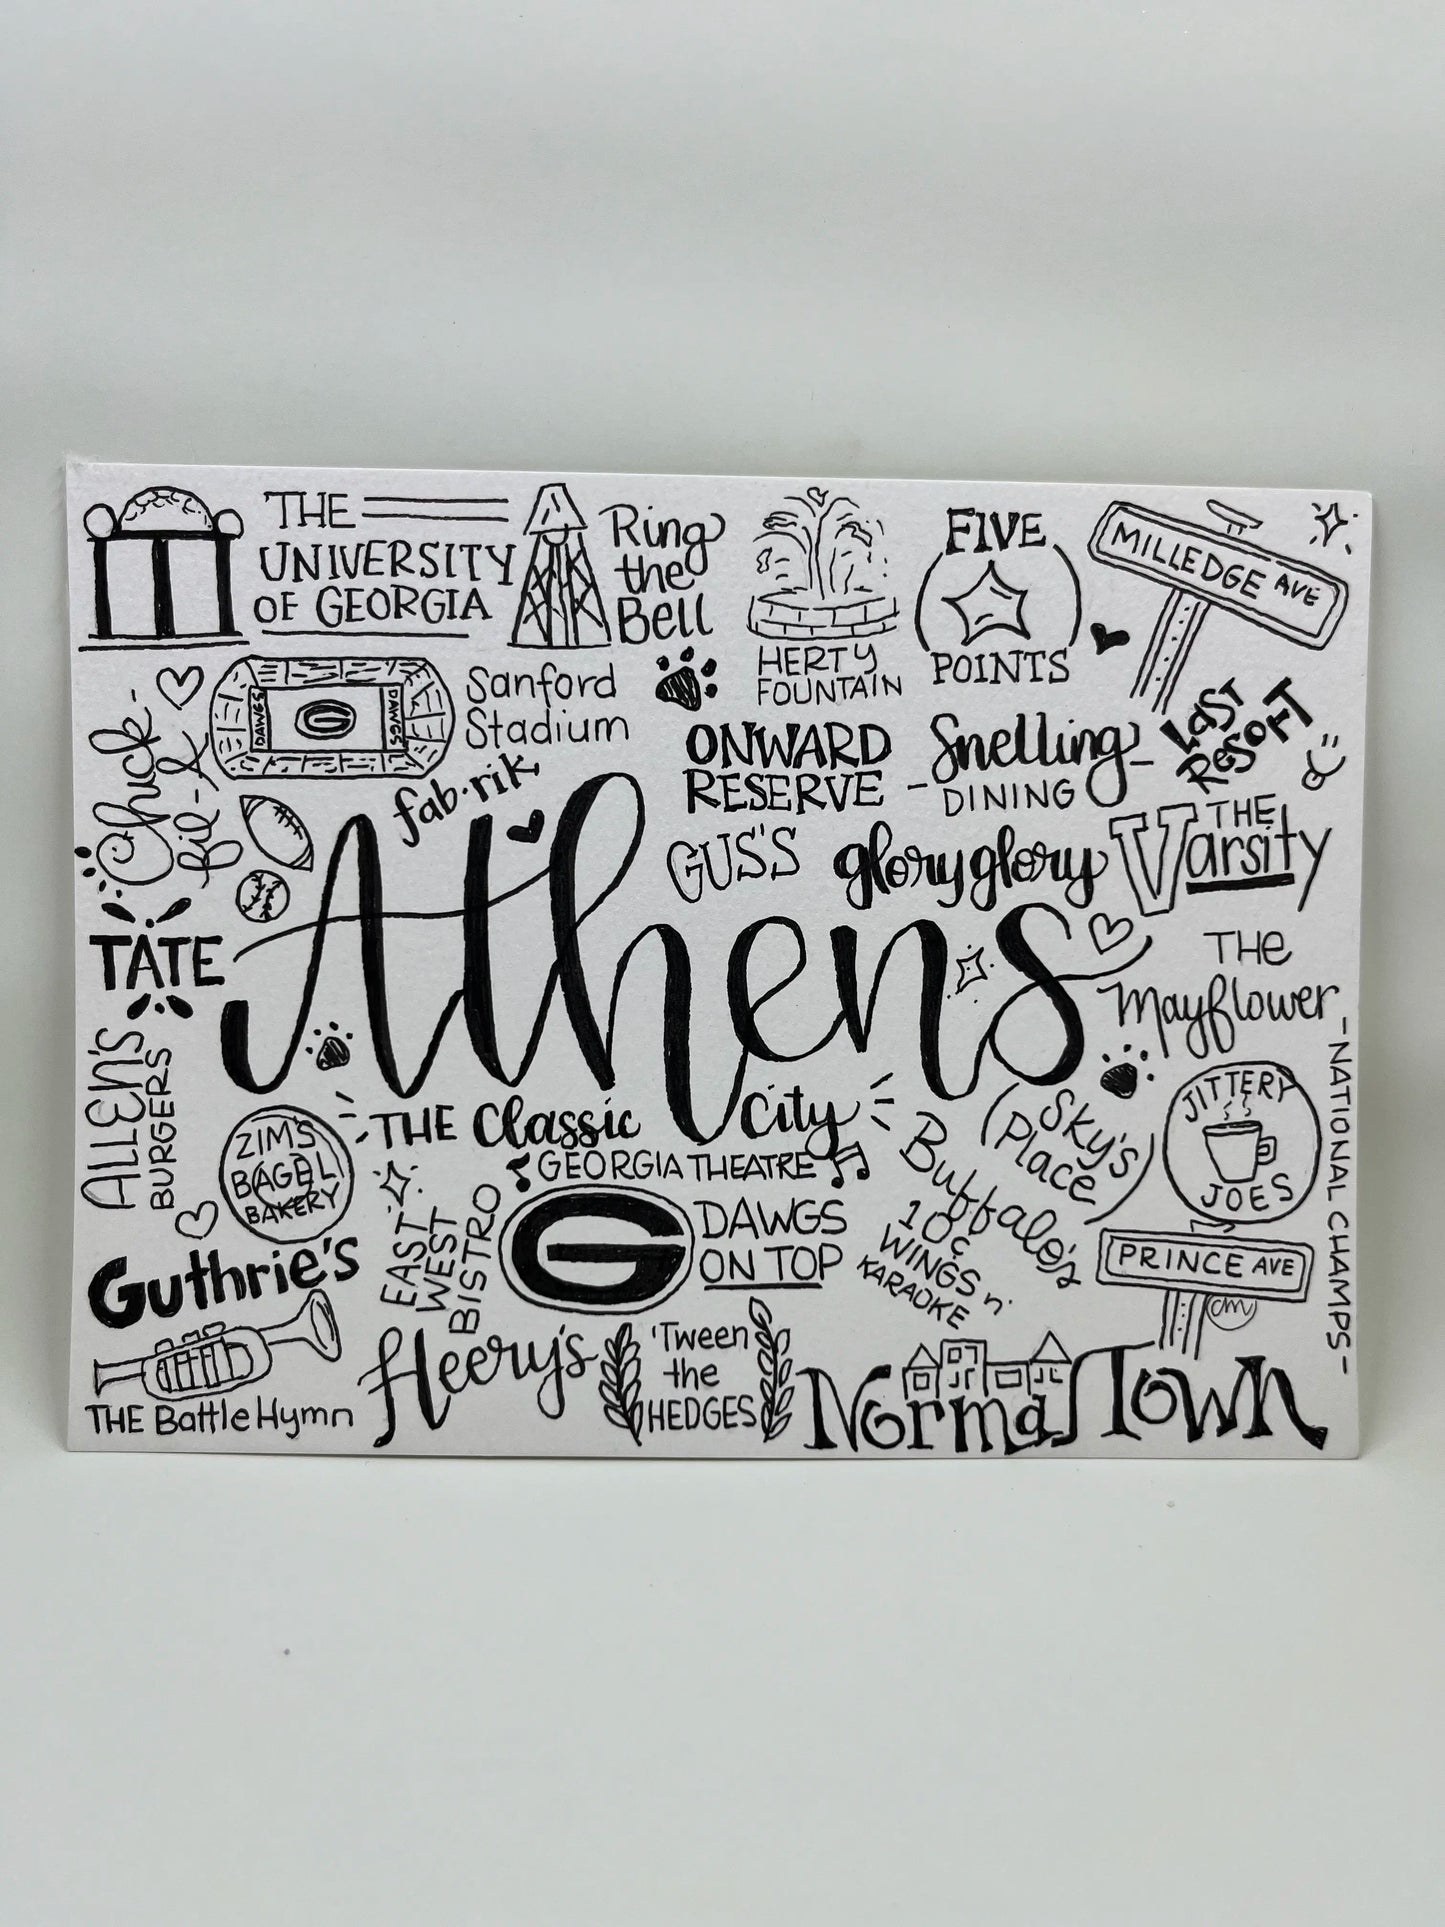 THE
UNIVERSITY
OF GEORGIA
Ring
the
Bell
HERTY
FOUNTAIN
FIVE
POINTS
MILLEDGE AVE
Chuck-
fil-A
DAWGS
G
DAWGS
Sanford
Stadium
fab·rik
ONWARD
RESERVE
-Snelling-
DINING
LAST
RESORT
GUS'S
glory glory
THE
Varsity
TATE
Athens
THE
Mayflower
ALLEN'S
BURGERS
ZIM'S
BAGEL
BAKERY
THE Classic City
GEORGIA THEATRE
Sky's
Place
JITTERY
JOES
-NATIONAL CHAMPS-
Guthrie's
EAST
WEST
BISTRO
G
DAWGS
ON TOP
Buffalo's
10¢
WINGS n'
KARAOKE
PRINCE AVE
cm
THE Battle Hymn
Heery's
'Tween
the
HEDGES
NormalTown